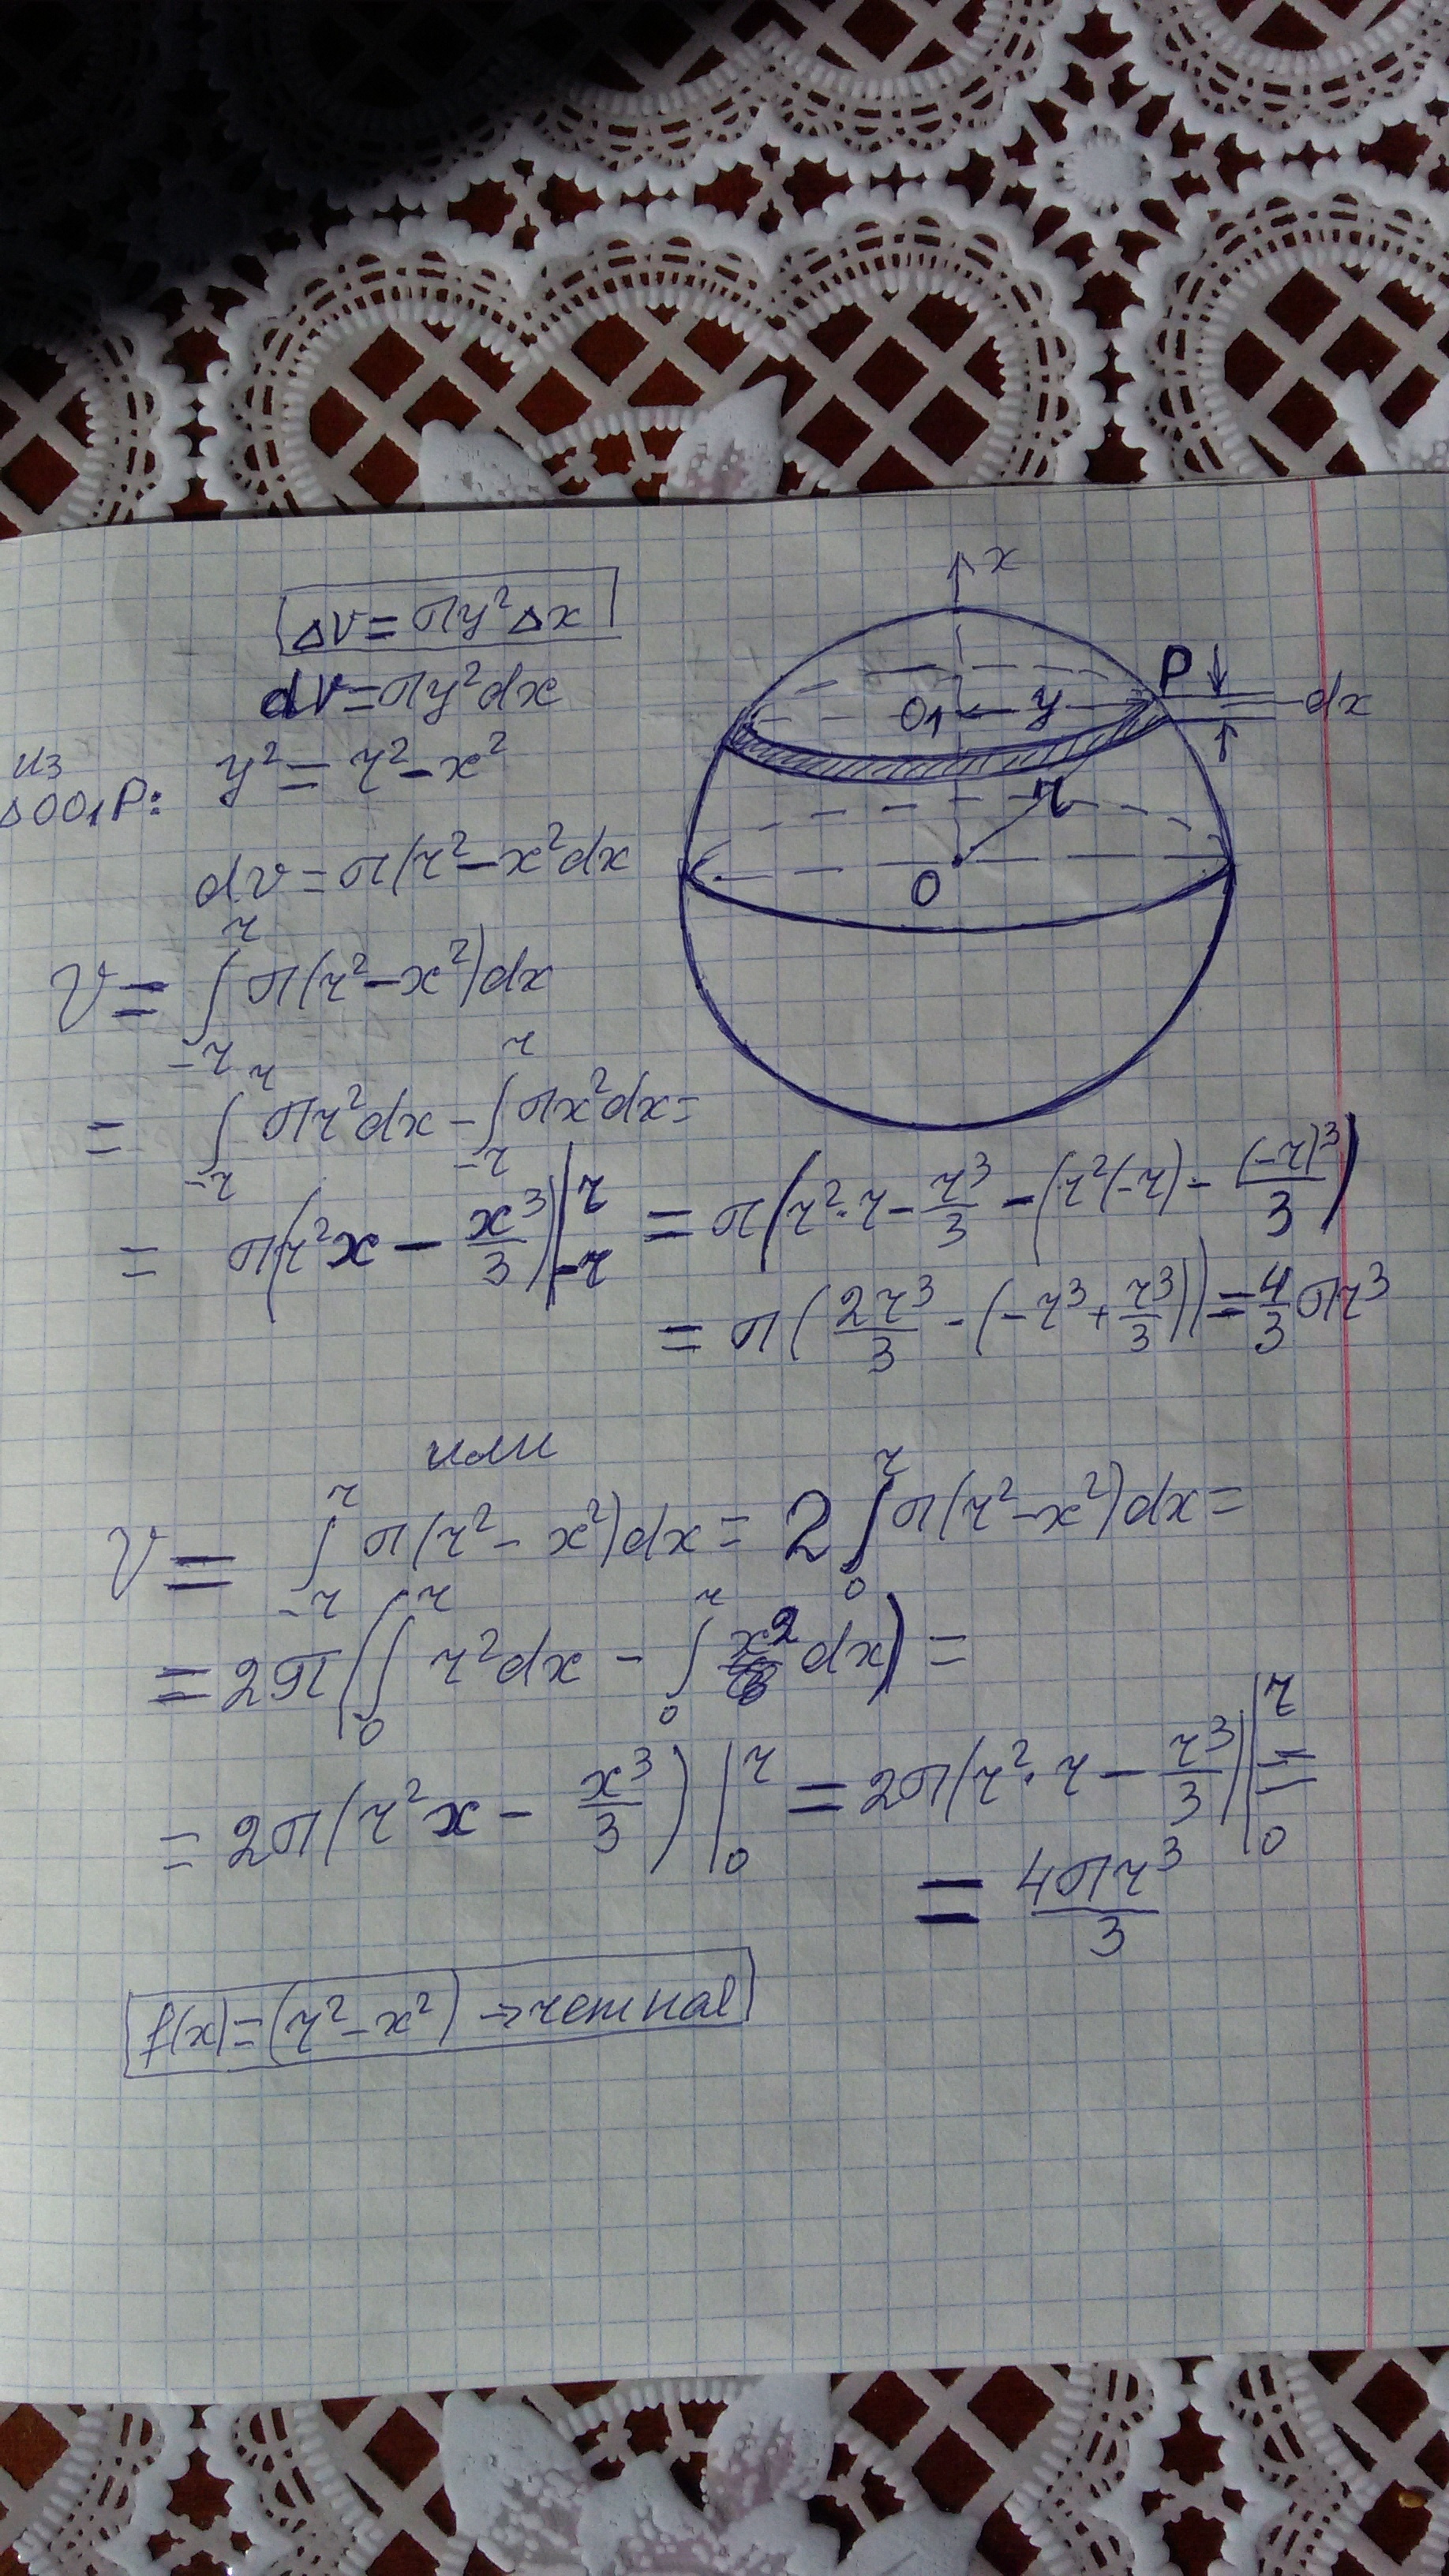 ΔV = πy²Δx
dV = πy²dx
из
ΔOO₁P: y² = r² - x²
dv = π(r² - x²dx
V = ∫₋ᵣʳ π(r² - x²)dx
= ∫₋ᵣʳ πr²dx - ∫₋ᵣʳ πx²dx =
= π(r²x - x³/3)|₋ᵣʳ = π(r²·r - r³/3 - (r²(-r) - (-r)³/3)
= π(2r³/3 - (-r³ + r³/3)) = 4/3 πr³
x
P
O₁ y dx
r
O
или
V = ∫₋ᵣʳ π(r² - x²)dx = 2∫₀ʳ π(r² - x²)dx =
= 2π(∫₀ʳ r²dx - ∫₀ʳ x² dx) =
= 2π(r²x - x³/3)|₀ʳ = 2π(r²·r - r³/3)|₀ʳ =
= 4πr³/3
f(x) = (r² - x²) → четная